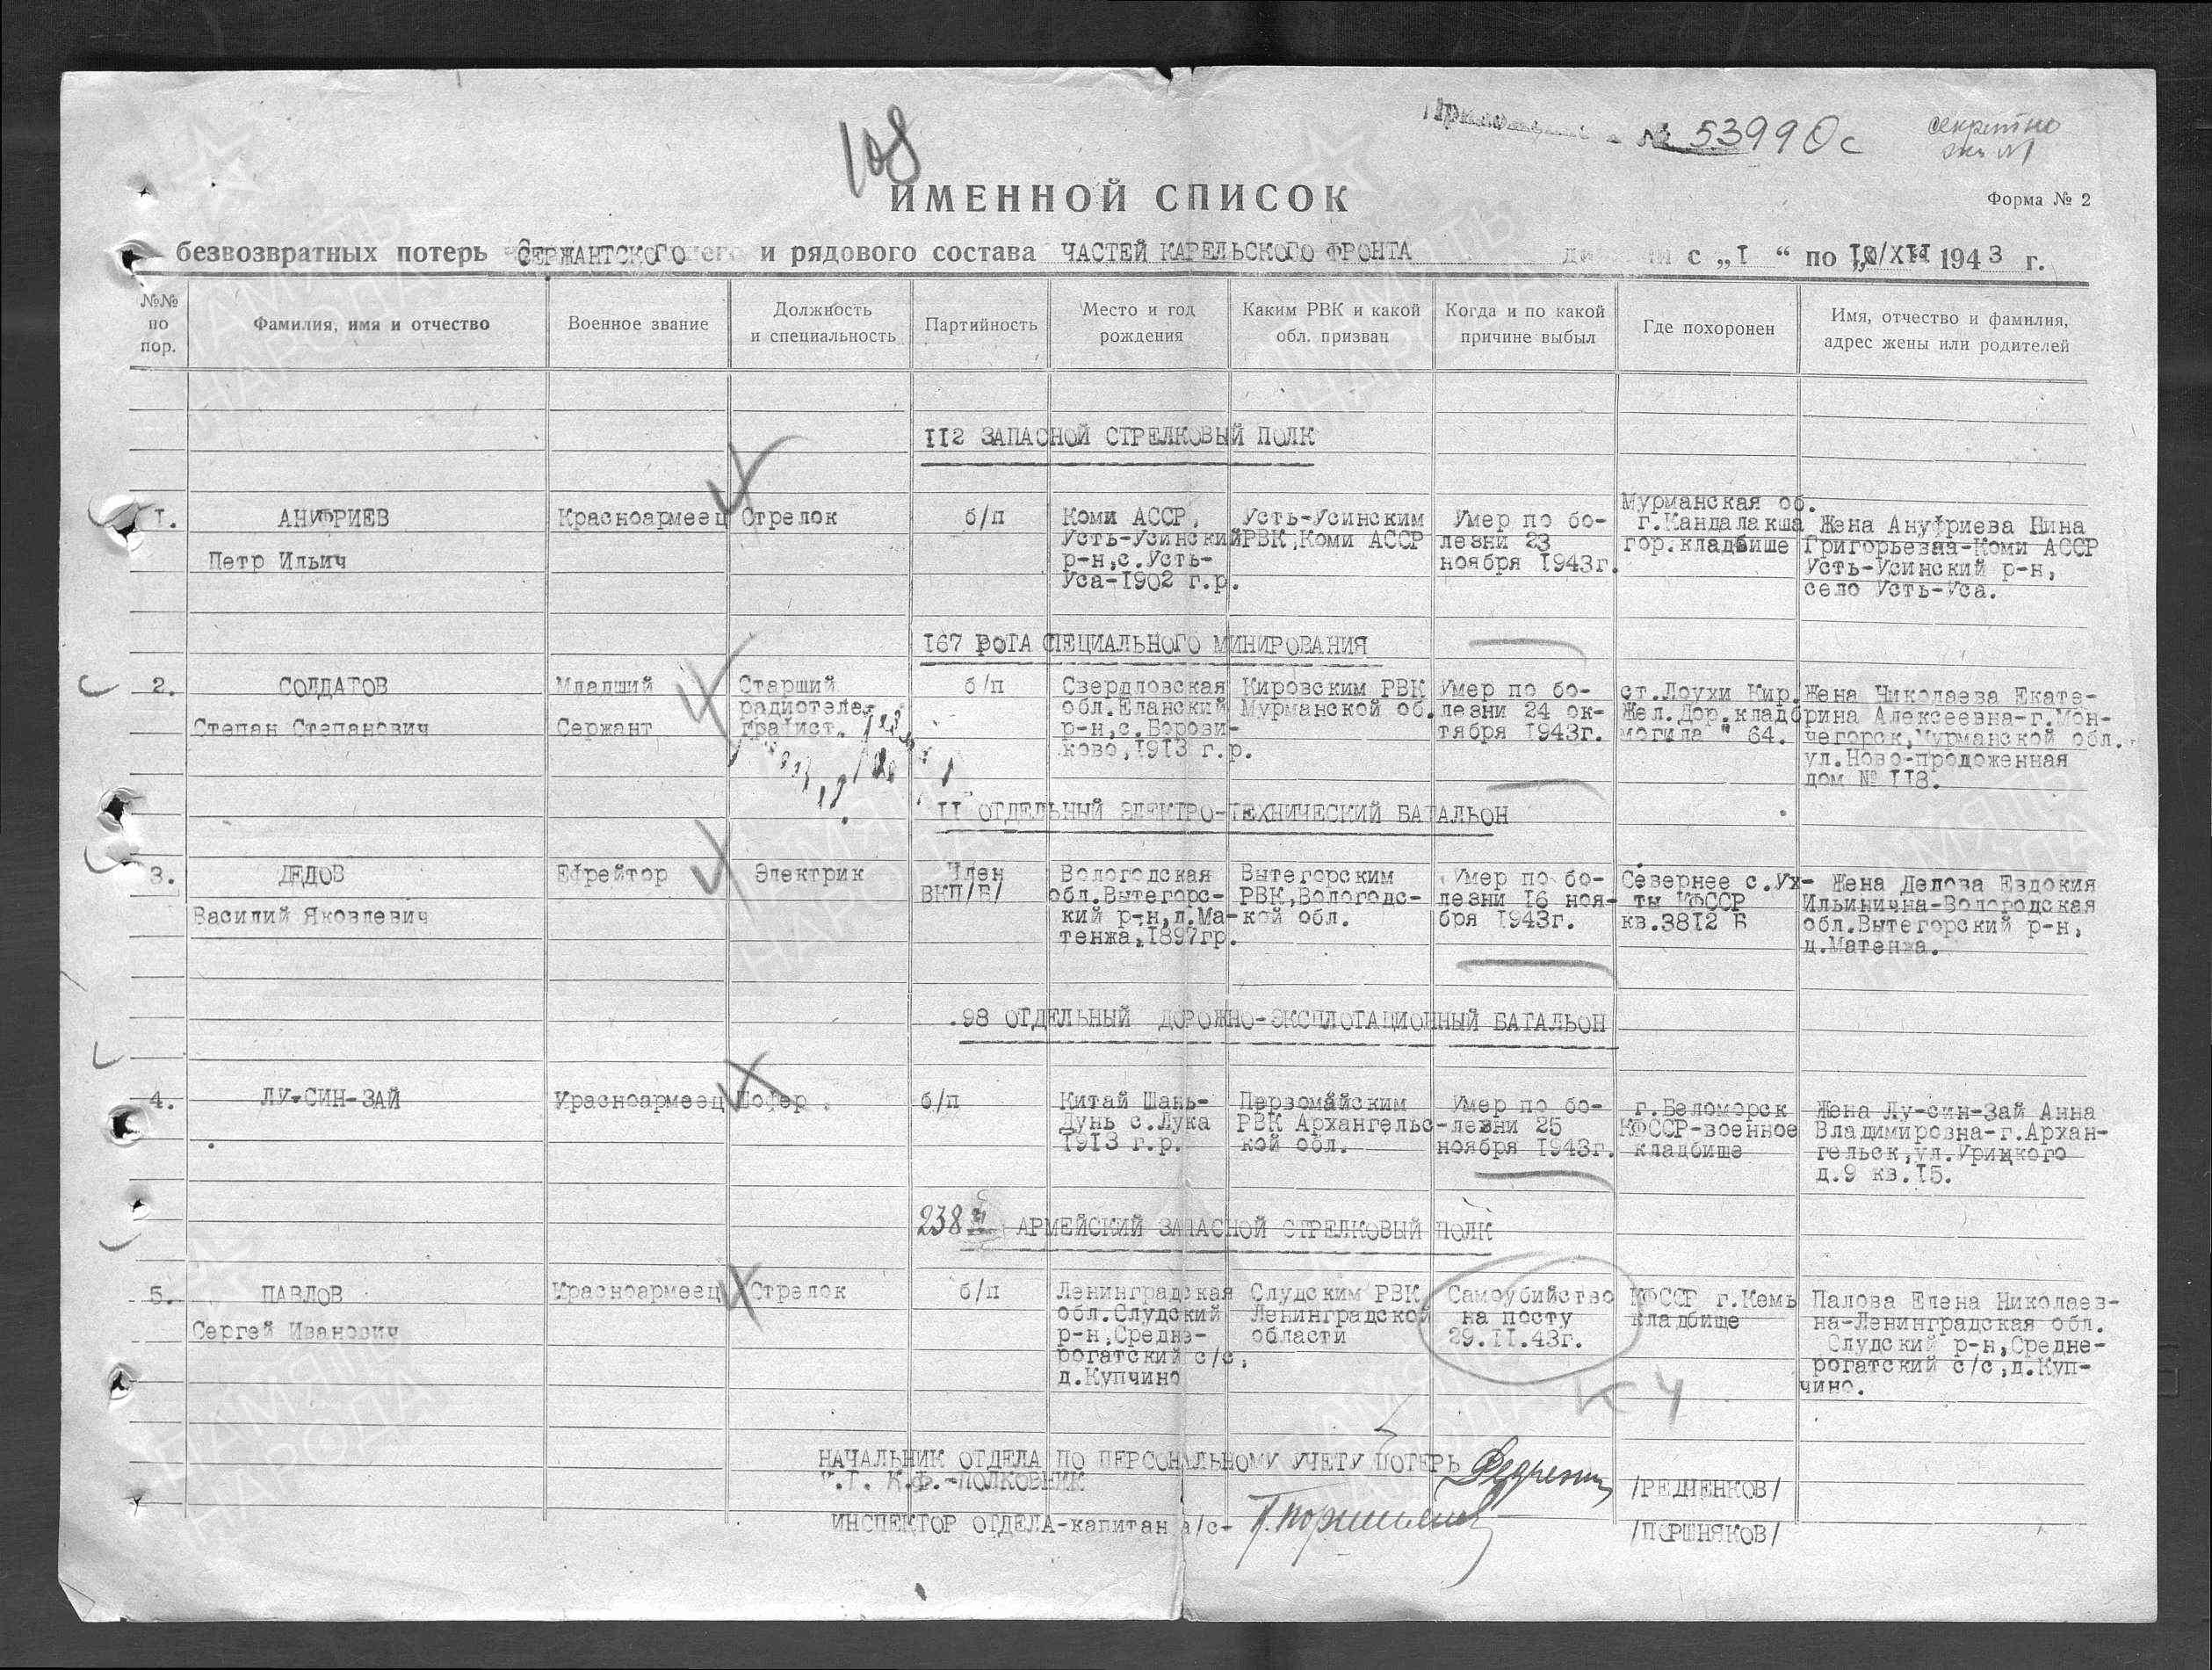 108
№ 53990с
секретно
экз №1
ИМЕННОЙ СПИСОК
Форма № 2
безвозвратных потерь СЕРЖАНТСКОГО и рядового состава ЧАСТЕЙ КАРЕЛЬСКОГО ФРОНТА с „I “ по „IO/XII 1943 г.
№№ по пор.
Фамилия, имя и отчество
Военное звание
Должность и специальность
Партийность
Место и год рождения
Каким РВК и какой обл. призван
Когда и по какой причине выбыл
Где похоронен
Имя, отчество и фамилия, адрес жены или родителей
II2 ЗАПАСНОЙ СТРЕЛКОВЫЙ ПОЛК
I.
АНУФРИЕВ
Петр Ильич
Красноармеец
Стрелок
б/п
Коми АССР,
Усть-Усинский
р-н,с.Усть-
Уса-I902 г.р.
Усть-Усинским
РВК,Коми АССР
Умер по бо-
лезни 23
ноября I943г.
Мурманская об.
г.Кандалакша
гор.кладбище
Жена Ануфриева Нина
Григорьевна-Коми АССР
Усть-Усинский р-н,
село Усть-Уса.
I67 РОТА СПЕЦИАЛЬНОГО МИНИРОВАНИЯ
2.
СОЛДАТОВ
Степан Степанович
Младший
Сержант
Старший
радиотеле-
графист.
б/п
Свердловская
обл.Еланский
р-н,с.Борови-
ково,I9I3 г.р.
Кировским РВК
Мурманской об.
Умер по бо-
лезни 24 ок-
тября I943г.
ст.Лоухи Кир.
Жел.Дор.кладб
могила " 64.
Жена Николаева Екате-
рина Алексеевна-г.Мон-
чегорск,Мурманской обл.
ул.Ново-продоженная
дом № II8.
II ОТДЕЛЬНЫЙ ЭЛЕКТРО-ТЕХНИЧЕСКИЙ БАТАЛЬОН
3.
ДЕДОВ
Василий Яковлевич
Ефрейтор
Электрик
Член
ВКП/Б/
Вологодская
обл.Вытегорс-
кий р-н,д.Ма-
тенжа,I897гр.
Вытегорским
РВК,Вологодс-
кой обл.
Умер по бо-
лезни I6 ноя-
бря I943г.
Севернее с.Ух-
ты КФССР
кв.38I2 Б
Жена Дедова Евдокия
Ильинична-Вологодская
обл.Вытегорский р-н,
д.Матенжа.
98 ОТДЕЛЬНЫЙ ДОРОЖНО-ЭКСПЛОТАЦИОННЫЙ БАТАЛЬОН
4.
ЛУ-СИН-ЗАЙ
Красноармеец
Шофер.
б/п
Китай Шань-
Дунь с.Лука
I9I3 г.р.
Первомайским
РВК Архангельс-
кой обл.
Умер по бо-
лезни 25
ноября I943г.
г.Беломорск
КФССР-военное
кладбище
Жена Лу-син-Зай Анна
Владимировна-г.Архан-
гельск,ул.Урицкого
д.9 кв.I5.
238 АРМЕЙСКИЙ ЗАПАСНОЙ СТРЕЛКОВЫЙ ПОЛК
5.
ПАВЛОВ
Сергей Иванович
Красноармеец
Стрелок
б/п
Ленинградская
обл.Слудский
р-н,Средне-
рогатский с/с,
д.Купчино
Слудским РВК
Ленинградской
области
Самоубийство
на посту
29.II.43г.
КФССР г.Кемь
кладбище
Палова Елена Николаев-
на-Ленинградская обл.
Слудский р-н,Средне-
рогатский с/с,д.Куп-
чино.
НАЧАЛЬНИК ОТДЕЛА ПО ПЕРСОНАЛЬНОМУ УЧЕТУ ПОТЕРЬ
К.Ф.-ПОЛКОВНИК
/РЕДЧЕНКОВ/
ИНСПЕКТОР ОТДЕЛА-капитан а/с-
/ПОРШНЯКОВ/
ПАМЯТЬ НАРОДА